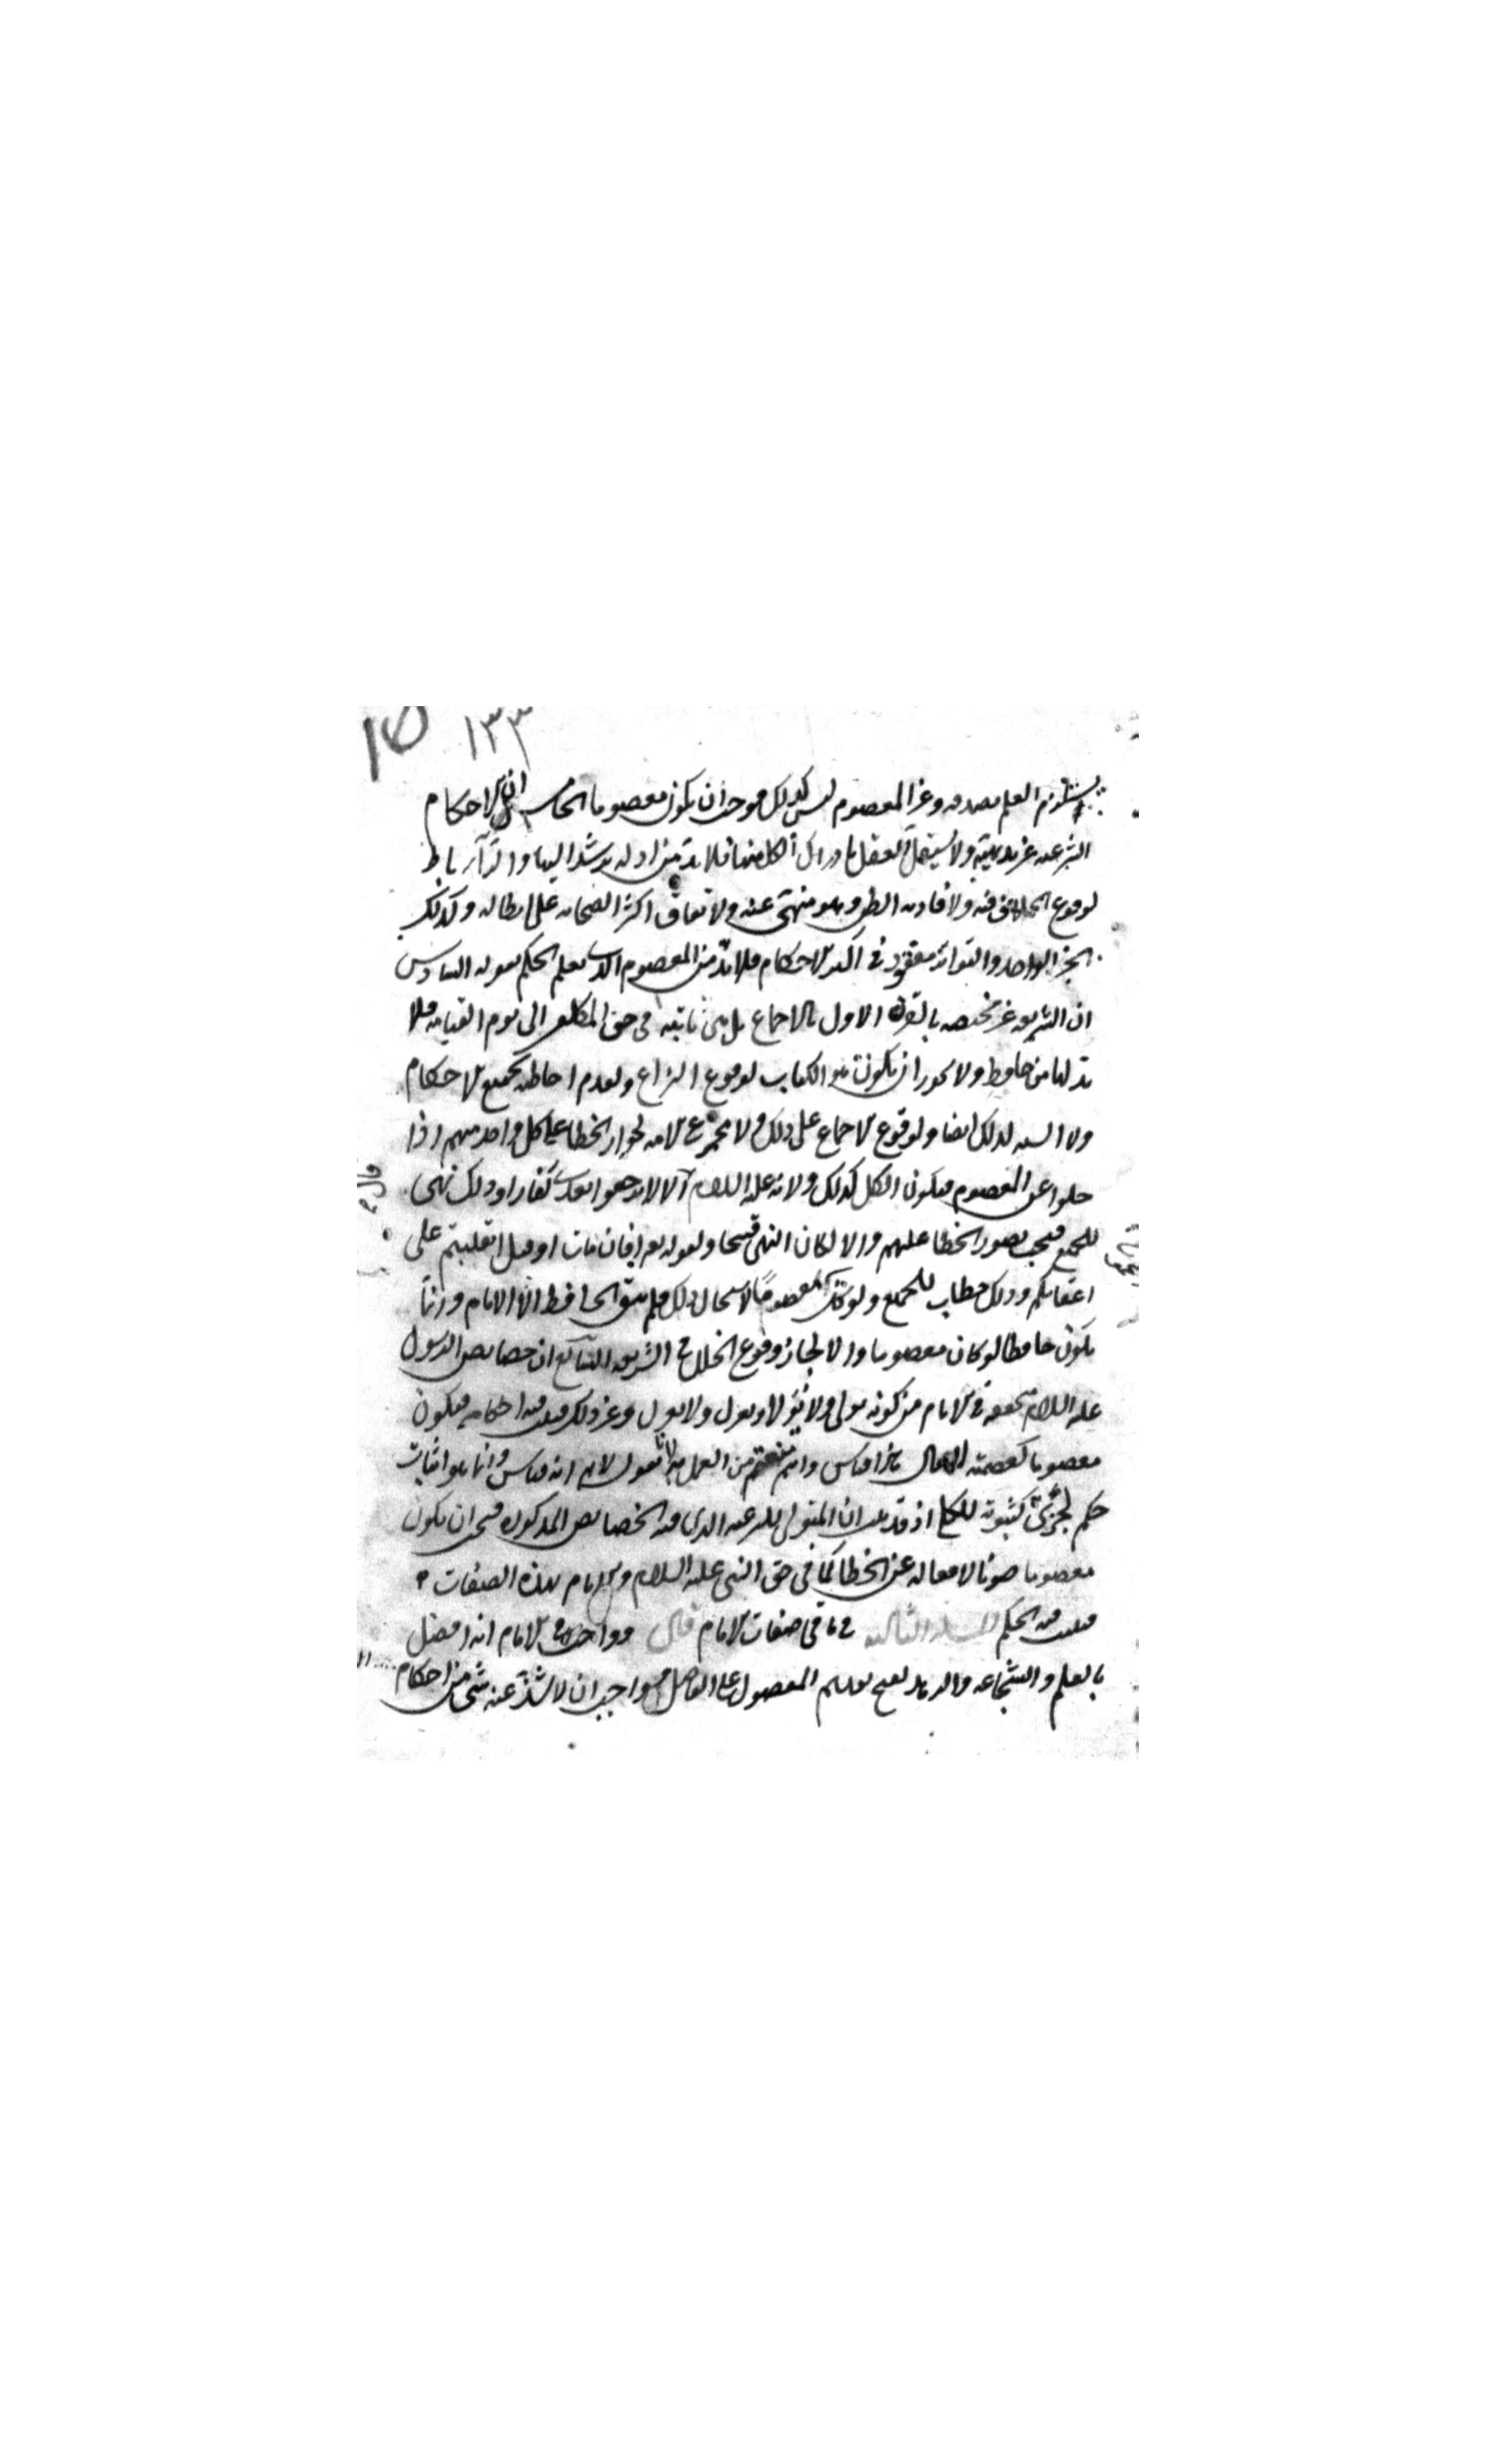 ١٣٣ ١٥
يستلزم العلم بصدقه وغير المعصوم ليس كذلك فوجب ان يكون معصوما الخامس ان الاحكام
الشرعية غير بديهية ولا يستقل العقل بادراك أكثرها فلا بد من ادلة ترشد اليها والرأي باطل
لوقوع الخلاف فيه ولافادته الظن وهو منهي عنه ولاتفاق اكثر الصحابة على ابطاله وكذلك
الخبر الواحد والتواتر مفقود في اكثر الاحكام فلا بد من المعصوم الذي يعلم الحكم بقوله السادس
ان الشريعة غير مختصة بالقرن الاول بالاجماع بل هي ثابتة في حق المكلف الى يوم القيامة فلا
بد لها من حافظ ولا يجوز ان يكون هو الكتاب لوقوع النزاع ولعدم احاطته بجميع الاحكام
ولا السنة لذلك ايضا ولوقوع الاجماع على ذلك ولا مجموع الامة لجواز الخطا على كل واحد منهم اذا
خلوا عن المعصوم فيكون الكل كذلك ولانه عليه السلام قال الا لا ترجعوا بعدي كفارا وذلك نهي
للجميع فيجب تصور الخطا عليهم والا لكان النهي قبيحا ولقوله تع افإن مات او قتل انقلبتم على
اعقابكم وذلك خطاب للجميع ولو كان معصوما لاستحال ذلك فلم يبق الحافظ الا الامام وانما
يكون حافظا لو كان معصوما والا لجاز وقوع الخلل في الشريعة السابع ان خصايص الرسول
عليه السلام متحققة في الامام من كونه يولي ولا يولى ويعزل ولا يعزل وغير ذلك فيثبت فيه احكامه فيكون
معصوما كعصمته لا يقال هذا قياس وانتم منعتم من العمل به لانا نقول لا نم انه قياس وانما هو اثبات
حكم لجزئي كثبوته للكلي اذ قد ثبت ان المتولي للرعية الذي فيه الخصايص المذكورة فيجب ان يكون
معصوما صونا لافعاله عن الخطا كما في حق النبي عليه السلام والامام بهذه الصفات
فيثبت فيه الحكم المسئلة الثالثة في باقي صفات الامام قال وواجب في الامام انه افضل
بالعلم والشجاعة والزهد لقبح تقديم المفضول على الفاضل وواجب ان لا يشذ عنه شي من احكام